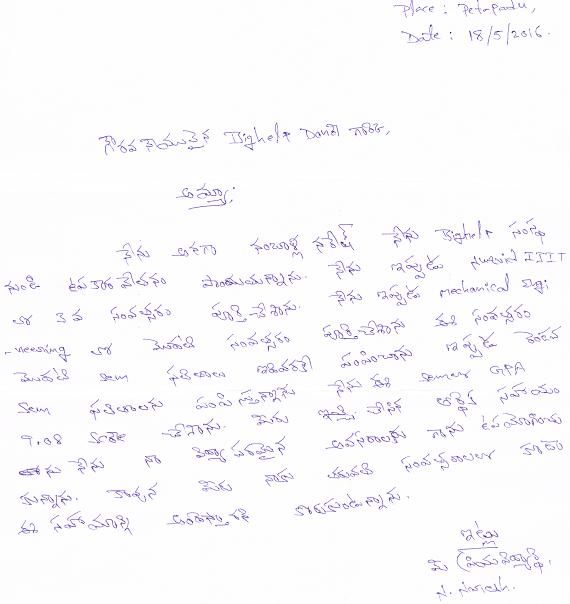 Place : Petapadu,
Date : 18/5/2016.
గౌరవనీయులైన Bighelp Donar గారికి,
అమ్మా;
నేను అనగా నంబూళ్ల నరేష్ నేను Bighelp సంస్థ
నుండి ఉపకారవేతనం పొందుచున్నాను. నేను ఇప్పుడు Nuzvid IIIT
లో 3 వ సంవత్సరం పూర్తి చేశాను. నేను ఇప్పుడు mechanical Engi
-neering లో మొదటి సంవత్సరం పూర్తి చేశాను ఈ సంవత్సరం
మొదటి sem ఫలితాలు ఇదివరకే పంపించాను ఇప్పుడు రెండవ
sem ఫలితాలను పంపిస్తున్నాను నేను ఈ semలో GPA
9.08 score చేశాను. మీరు చేసిన ఆర్థిక సహాయం
ను నేను నా విద్యా పరమైన అవసరాలకు గాను ఉపయోగించు
కున్నాను. కావున మీరు నాకు తరువాత సంవత్సరాలలో కూడా
ఈ సహాయాన్ని అందిస్తారని కోరుకుంటున్నాను.
ఇట్లు
మీ ప్రియవిద్యార్థి,
N. Naresh.